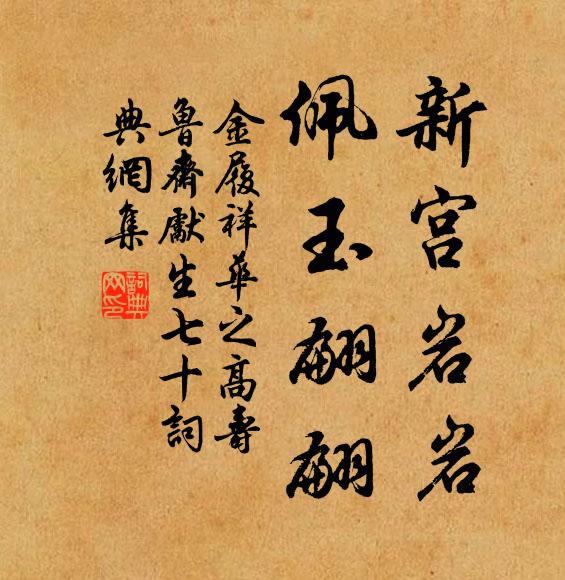 新宫岩岩
佩玉翩翩
金履祥華之高壽
魯齋獻生七十詞
典網集
詞典網印